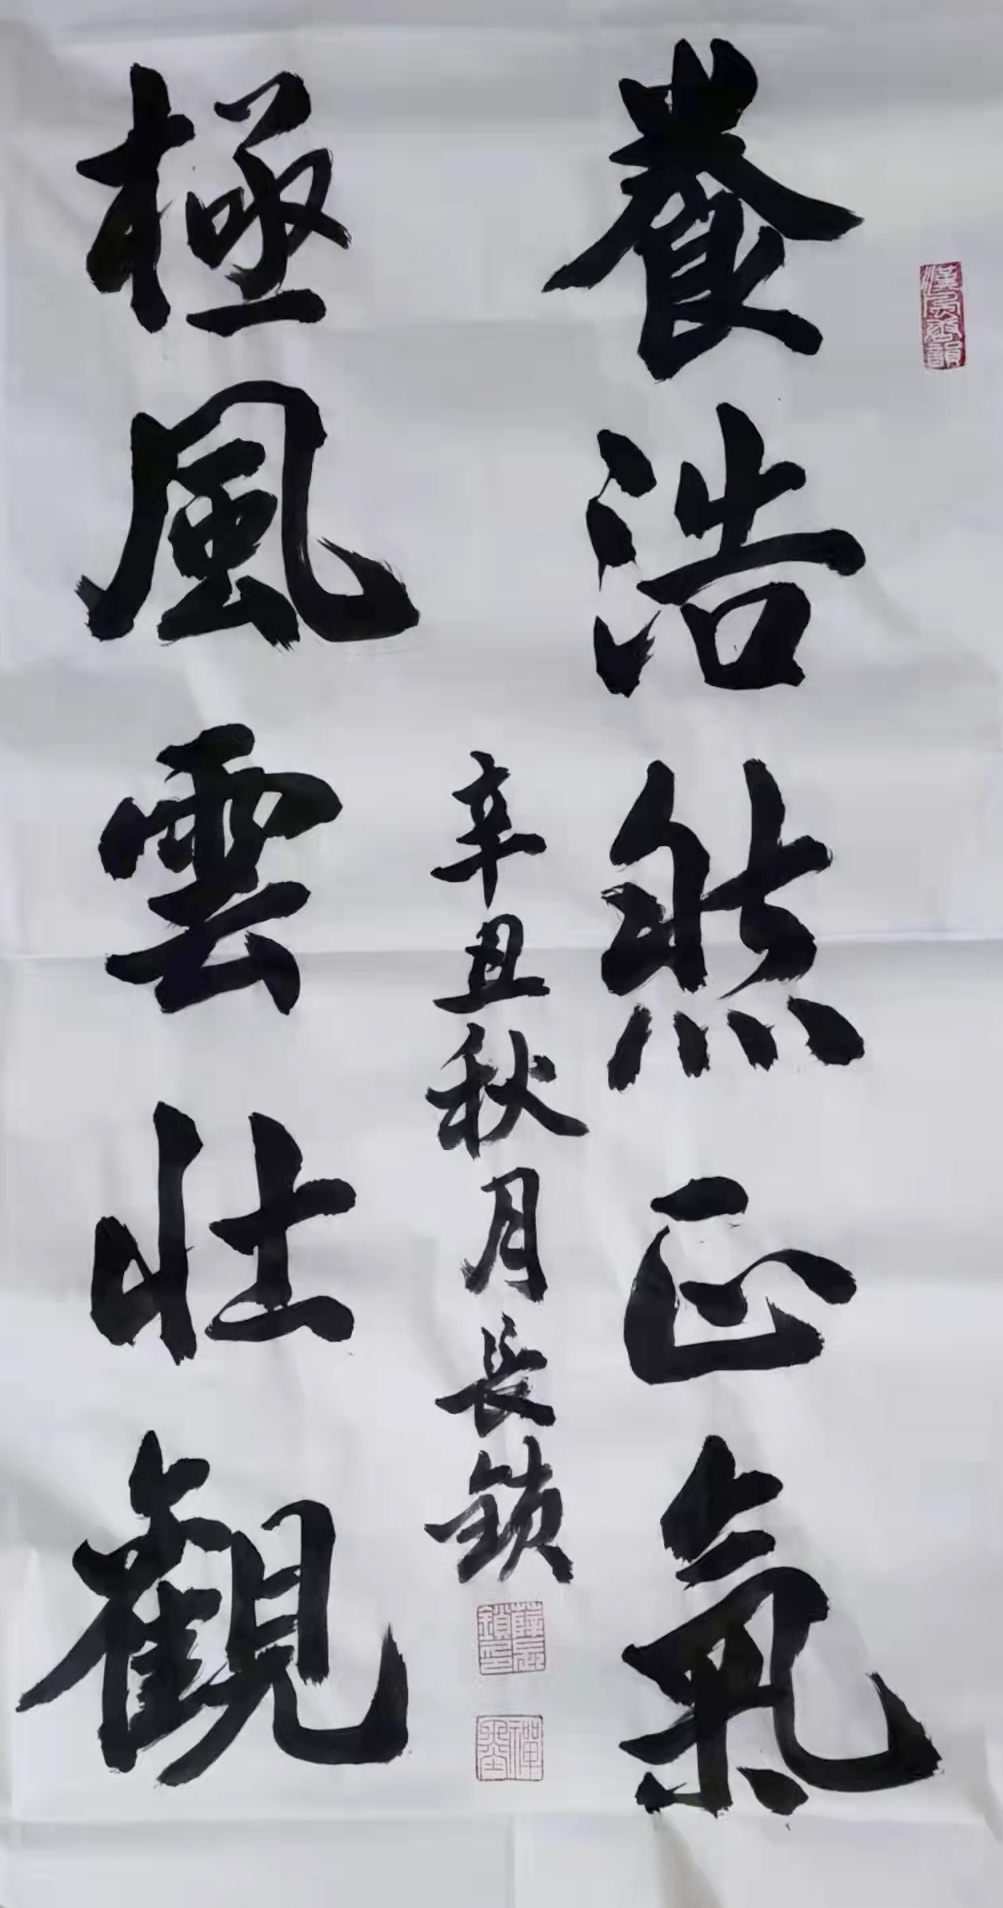 養浩然正氣
極風雲壯觀
辛丑秋月長鎖